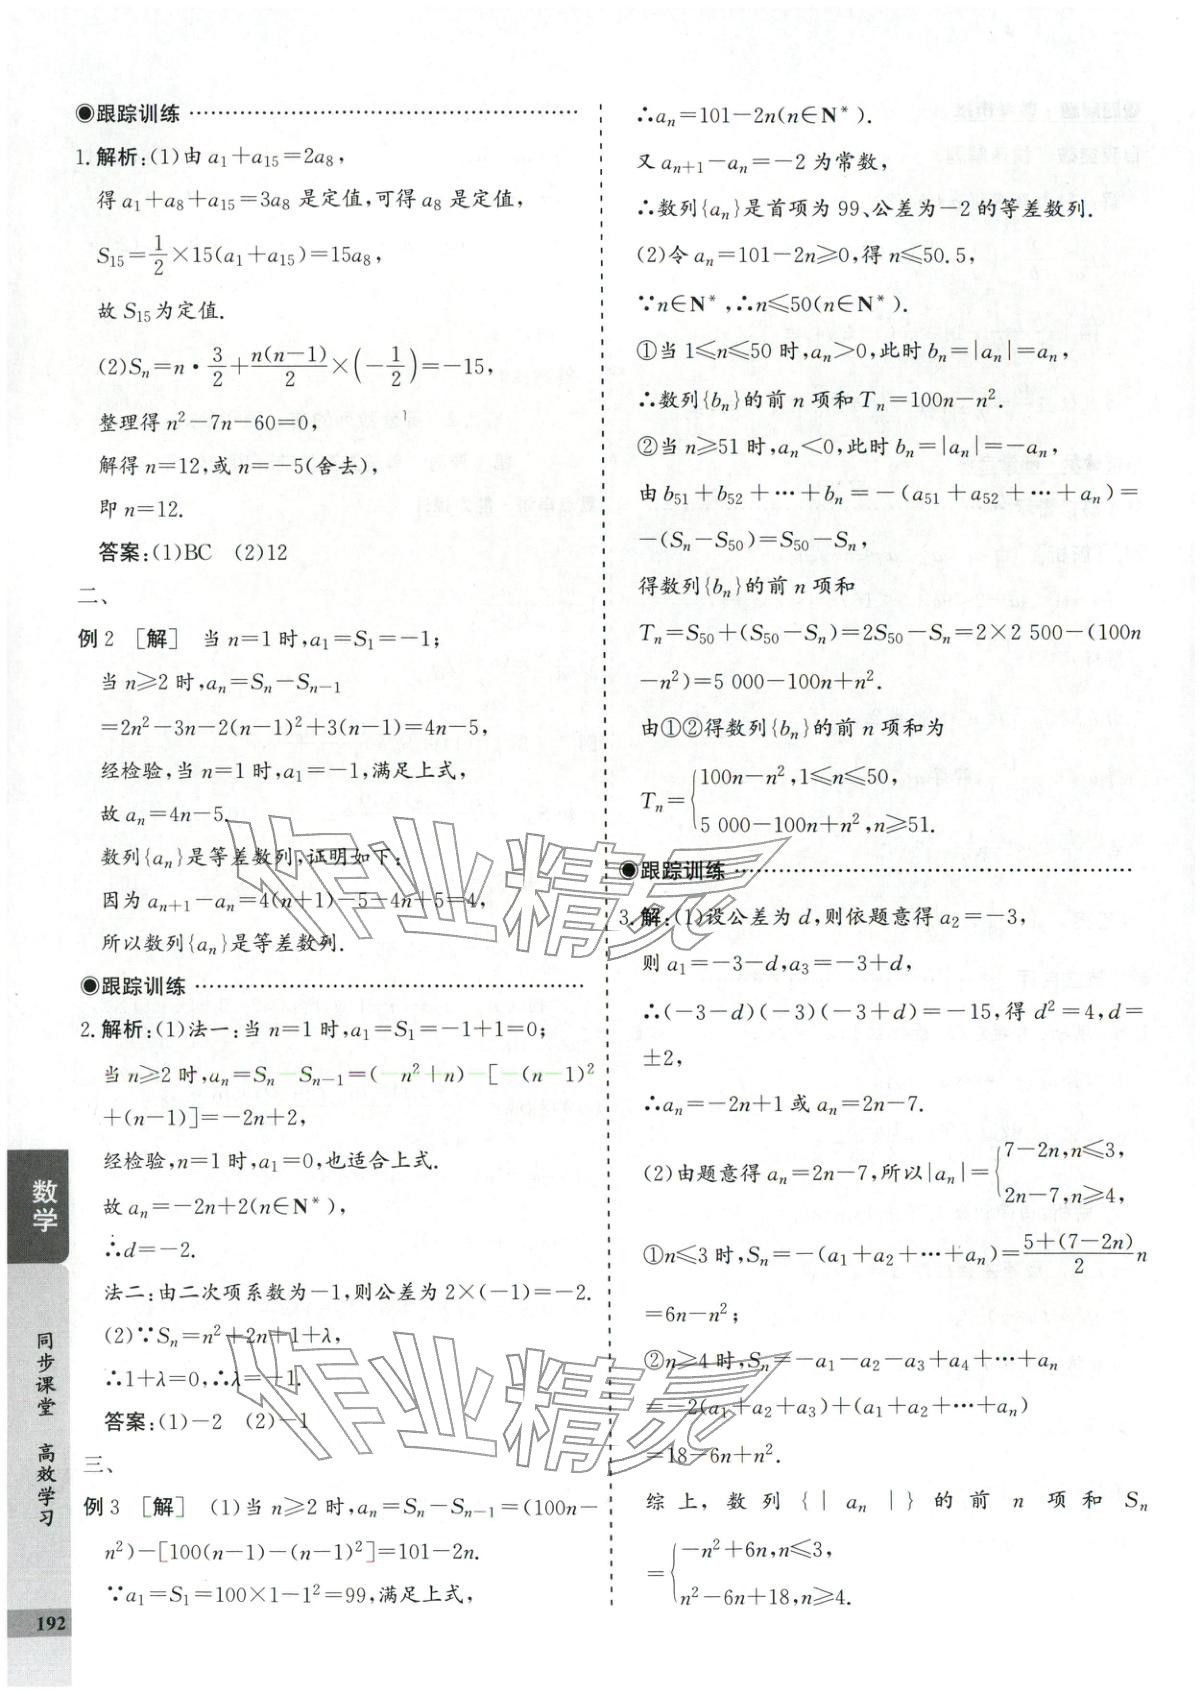 ◉跟踪训练
1. 解析:(1)由 a₁+a₁₅=2a₈,
得 a₁+a₈+a₁₅=3a₈ 是定值,可得 a₈ 是定值,
S₁₅=1/2×15(a₁+a₁₅)=15a₈,
故 S₁₅为定值.
(2)Sₙ=n·3/2+n(n-1)/2×(-1/2)=-15,
整理得 n²-7n-60=0,
解得 n=12,或 n=-5(舍去),
即 n=12.
答案:(1)BC (2)12
二、
例 2 [解] 当 n=1 时,a₁=S₁=-1;
当 n≥2 时,aₙ=Sₙ-Sₙ₋₁
=2n²-3n-2(n-1)²+3(n-1)=4n-5,
经检验,当 n=1 时,a₁=-1,满足上式,
故 aₙ=4n-5.
数列{aₙ}是等差数列,证明如下:
因为 aₙ₊₁-aₙ=4(n+1)-5-4n+5=4,
所以数列{aₙ}是等差数列.
◉跟踪训练
2. 解析:(1)法一:当 n=1 时,a₁=S₁=-1+1=0;
当 n≥2 时,aₙ=Sₙ-Sₙ₋₁=(-n²+n)-[-(n-1)²
+(n-1)]=-2n+2,
经检验,n=1 时,a₁=0,也适合上式.
故 aₙ=-2n+2(n∈N*),
∴d=-2.
法二:由二次项系数为-1,则公差为 2×(-1)=-2.
(2)∵Sₙ=n²+2n+1+λ,
∴1+λ=0,∴λ=-1.
答案:(1)-2 (2)-1
三、
例 3 [解] (1)当 n≥2 时,aₙ=Sₙ-Sₙ₋₁=(100n-
n²)-[100(n-1)-(n-1)²]=101-2n.
∵a₁=S₁=100×1-1²=99,满足上式,
∴aₙ=101-2n(n∈N*).
又 aₙ₊₁-aₙ=-2 为常数,
∴数列{aₙ}是首项为 99、公差为-2 的等差数列.
(2)令 aₙ=101-2n≥0,得 n≤50.5,
∵n∈N*,∴n≤50(n∈N*).
①当 1≤n≤50 时,aₙ>0,此时 bₙ=|aₙ|=aₙ,
∴数列{bₙ}的前 n 项和 Tₙ=100n-n².
②当 n≥51 时,aₙ<0,此时 bₙ=|aₙ|=-aₙ,
由 b₅₁+b₅₂+…+bₙ=-(a₅₁+a₅₂+…+aₙ)=
-(Sₙ-S₅₀)=S₅₀-Sₙ,
得数列{bₙ}的前 n 项和
Tₙ=S₅₀+(S₅₀-Sₙ)=2S₅₀-Sₙ=2×2 500-(100n
-n²)=5 000-100n+n².
由①②得数列{bₙ}的前 n 项和为
Tₙ={100n-n²,1≤n≤50,
5 000-100n+n²,n≥51.
◉跟踪训练
3. 解:(1)设公差为 d,则依题意得 a₂=-3,
则 a₁=-3-d,a₃=-3+d,
∴(-3-d)(-3)(-3+d)=-15,得 d²=4,d=
±2,
∴aₙ=-2n+1 或 aₙ=2n-7.
(2)由题意得 aₙ=2n-7,所以|aₙ|={7-2n,n≤3,
2n-7,n≥4,
①n≤3 时,Sₙ=-(a₁+a₂+…+aₙ)=5+(7-2n)/2 n
=6n-n²;
②n≥4 时,Sₙ=-a₁-a₂-a₃+a₄+…+aₙ
=-2(a₁+a₂+a₃)+(a₁+a₂+…+aₙ)
=18-6n+n².
综上,数列{|aₙ|}的前 n 项和 Sₙ
={-n²+6n,n≤3,
n²-6n+18,n≥4.
数学
同步课堂 高效学习
192
作业精灵
作业精灵